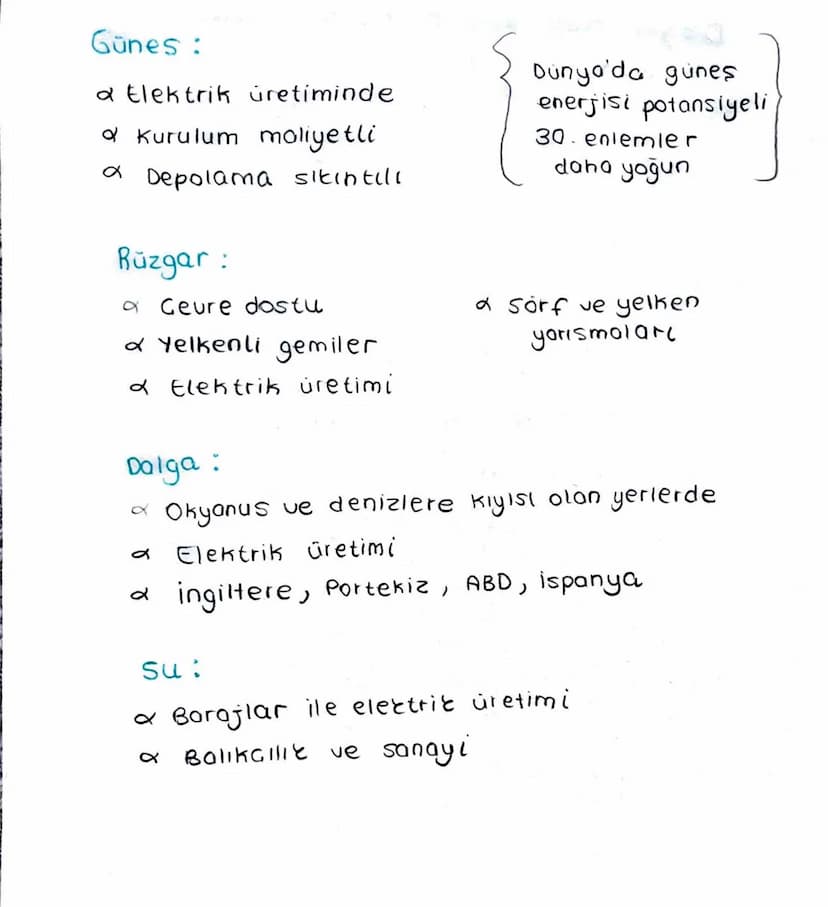 Güneş :
Elektrik üretiminde
Kurulum maliyetli
Depolama sıkıntılı
Dünya'da güneş
enerjisi potansiyeli
30. enlemler
daha yoğun
Rüzgar :
Çevre dostu
Yelkenli gemiler
Elektrik üretimi
Sörf ve yelken
yarısmaları
Dalga :
Okyanus ve denizlere kıyısı olan yerlerde
Elektrik üretimi
ingiltere, Portekiz, ABD, ispanya
Su :
Barajlar ile elektrik üretimi
Balıkcılık ve sanayi